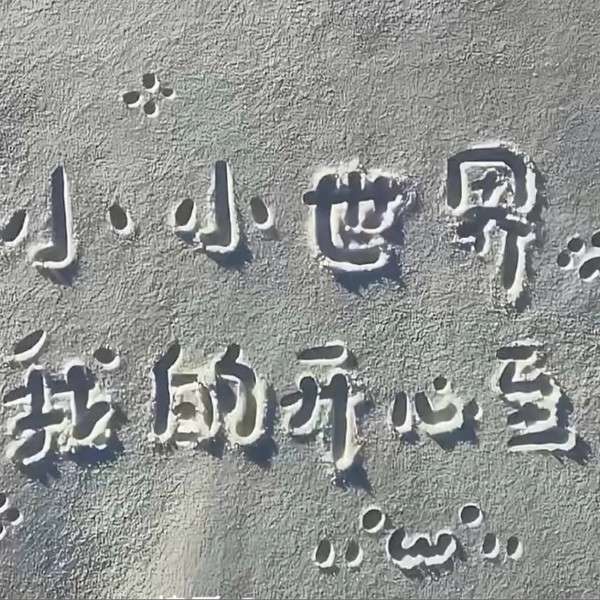 小小世界
我的开心至